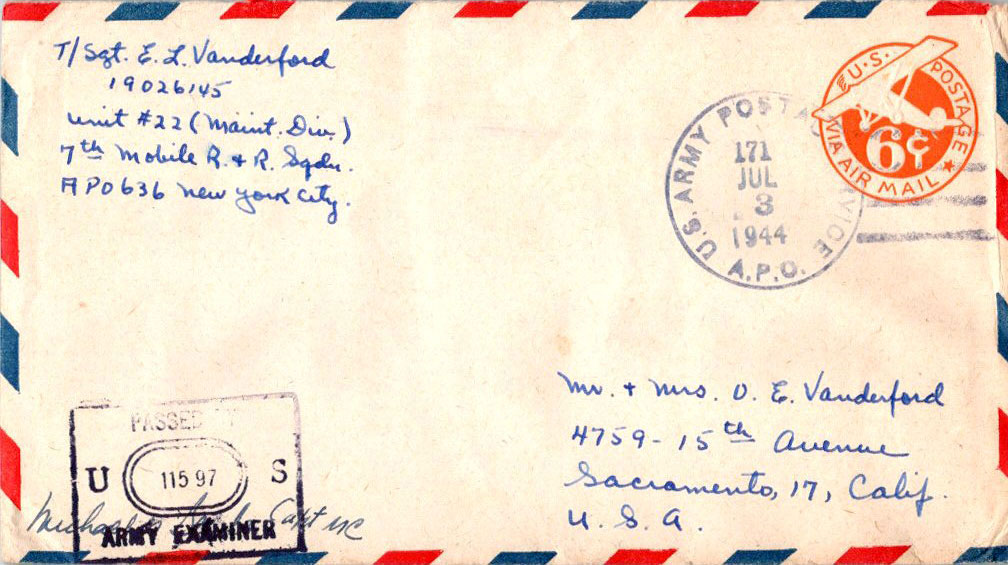 T/Sgt. E. L. Vanderford
19026145
Unit #22 (Maint. Div.)
7th Mobile R. + R. Sqdn.
APO 636 New York City.
U.S. ARMY POSTAL
171
JUL
3
1944
A.P.O.
U.S. POSTAGE
6¢
VIA AIR MAIL
Mr. + Mrs. O. E. Vanderford
4759 - 15th Avenue
Sacramento, 17, Calif.
U. S. A.
PASSED
U 11597 S
ARMY EXAMINER
Capt